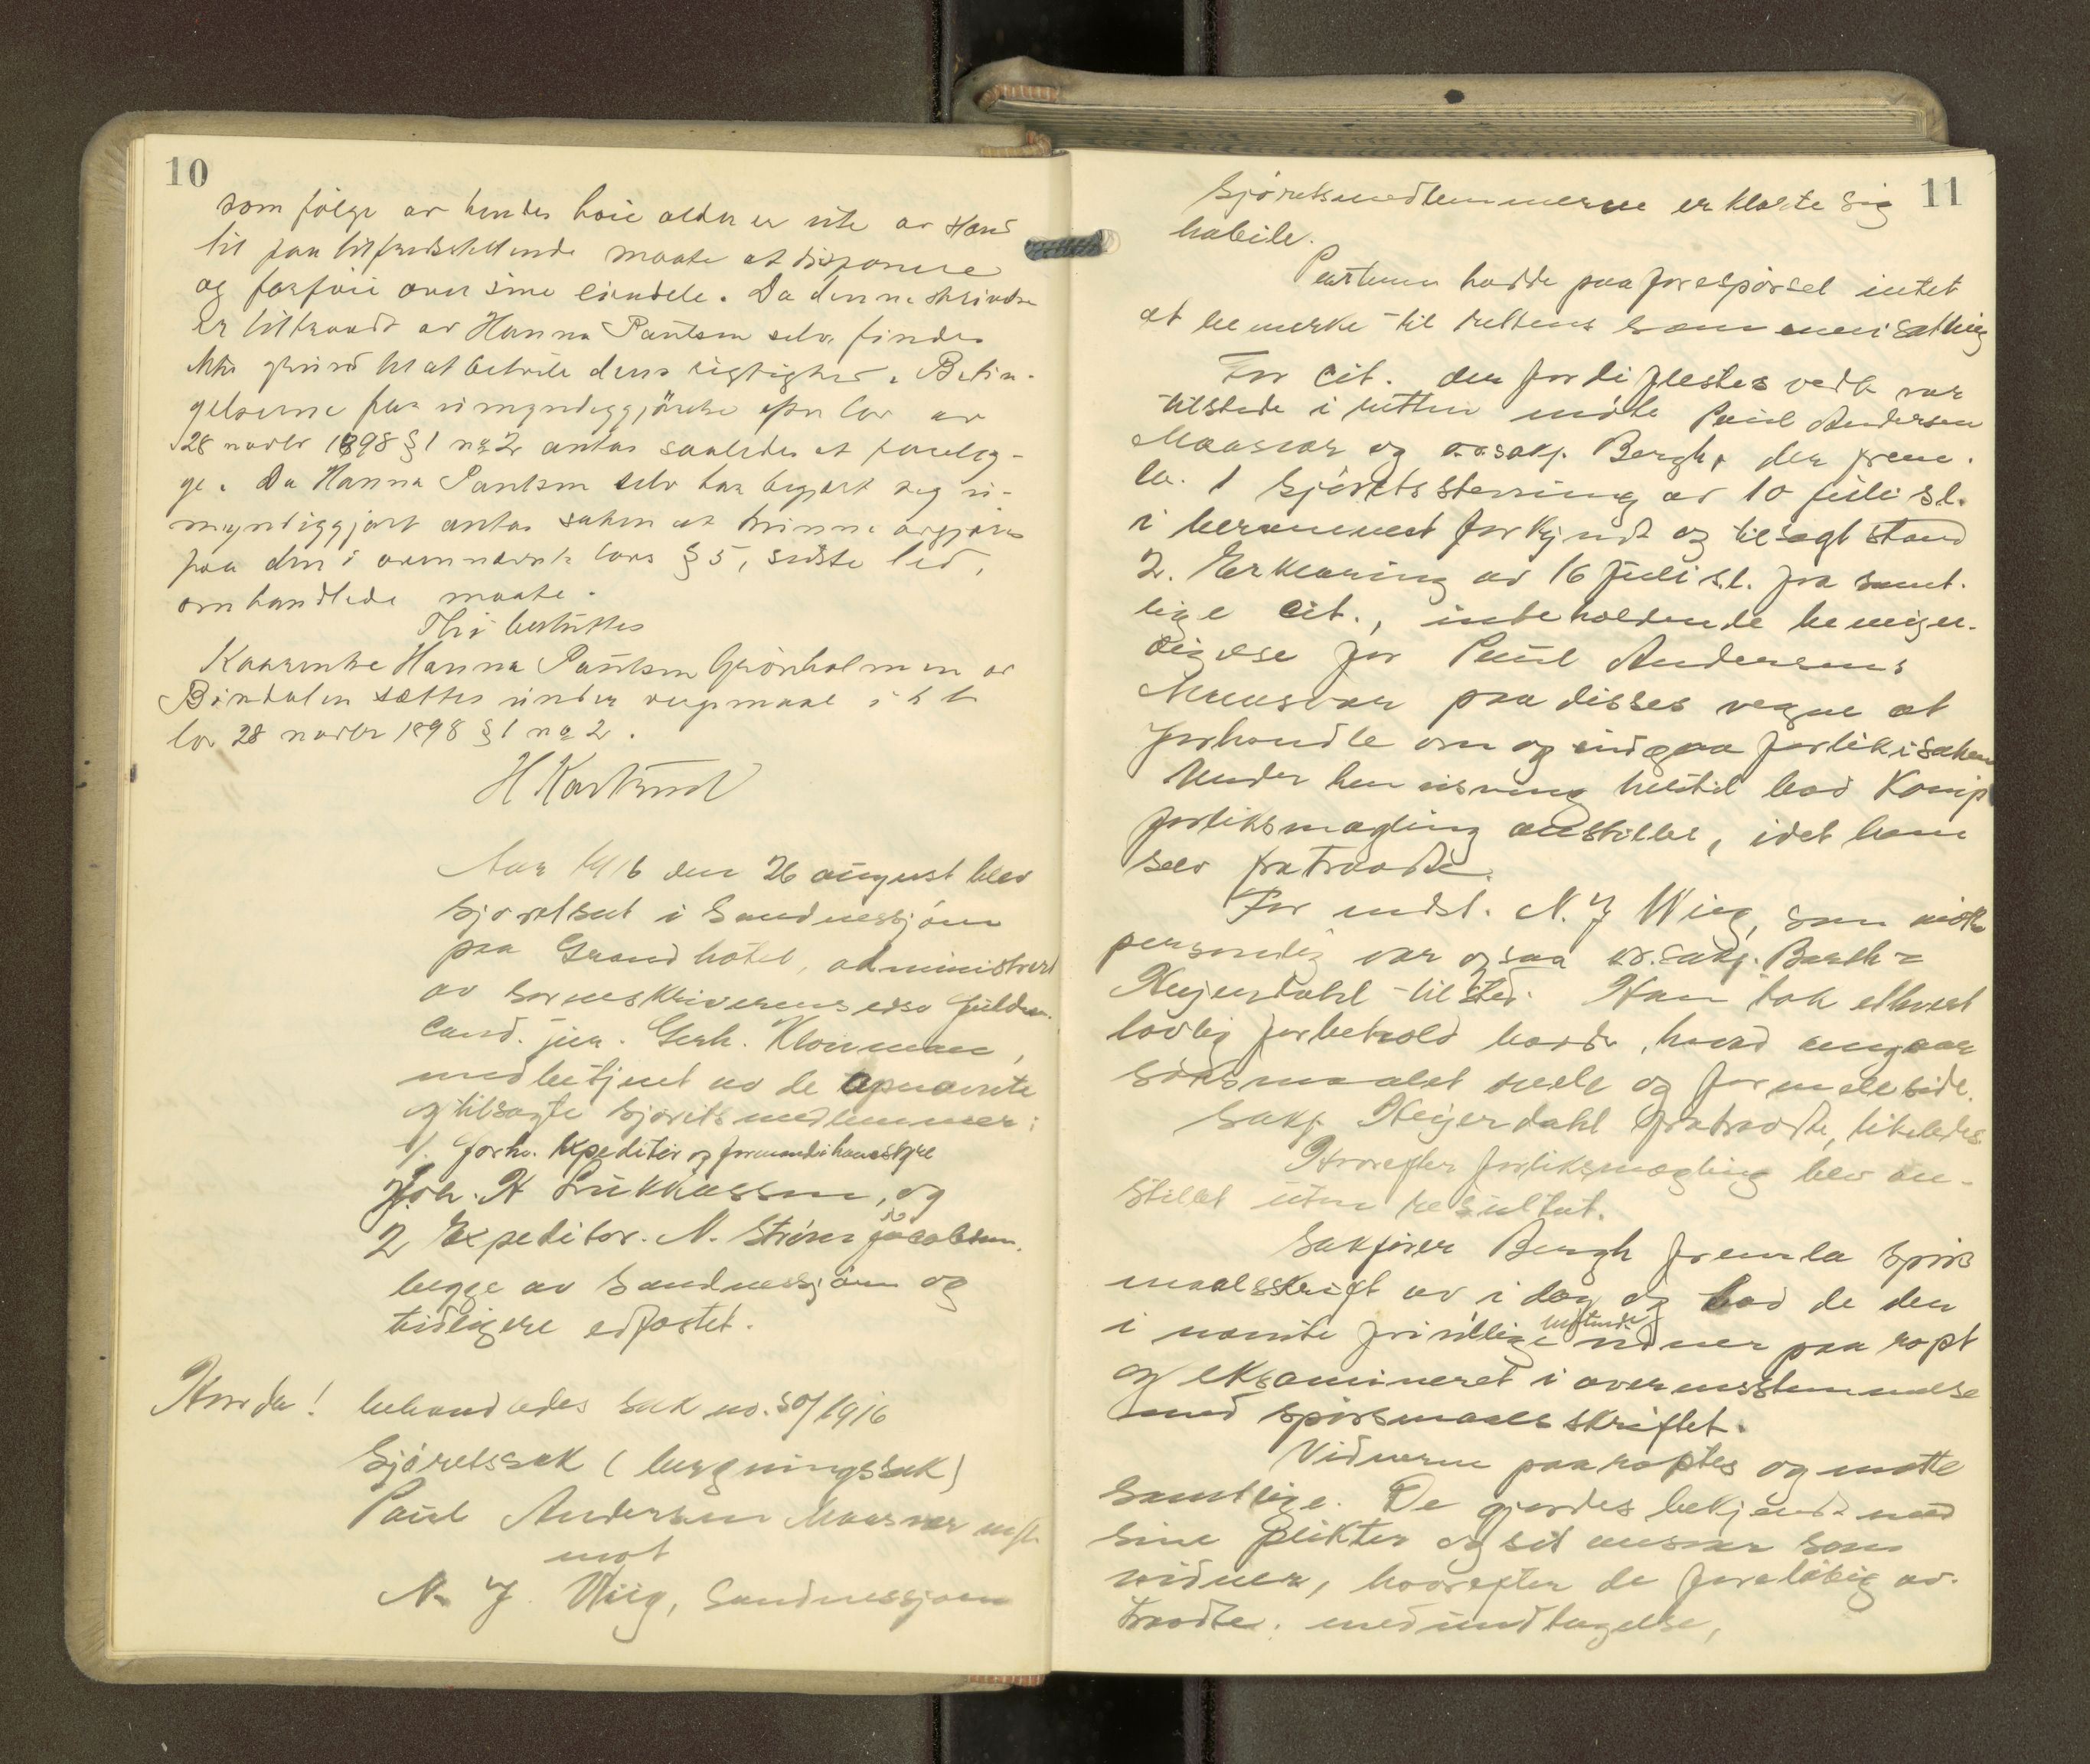 10
som følge av hendes høie alder er ute av stand
til paa tilfredsstillende maate at disponere
og forføie over sine eiendele. Da denne skrivelse
er tiltraadt av Hanna Paulsen selv, findes
ikke grund til at betvile dens rigtighet. Betin-
gelserne for umyndiggjørelse efter lov av
28 novbr 1898 § 1 no 2 antas saaledes at forelig-
ge. Da Hanna Paulsen selv har begjært sig u-
myndiggjort antas saken at kunne avgjøres
paa den i ovennævnte lovs § 5, sidste led,
omhandlede maate.
Thi besluttes
Kaarenke Hanna Paulsen Grønholmen av
Bindalen sættes under vergemaal i h t
lov 28 novbr 1898 § 1 no 2.
H Kartrud
Aar 1916 den 26 august blev
sjøret sat i Sandnessjøen
paa Grand hotel, administrert
av sorenskriverens edsv fuldm.
cand. jur. Gerh. Klouman,
medbetjent av de opnævnte
og tilsagte sjøretsmedlemmer:
1. forhv. Expeditør og formand i havnestyre
Joh. H Lukkassen, og
2 Expeditør. N. Strøm Jacobsen,
begge av Sandnessjøen og
tidligere edfæstet.
Hvorda! behandledes sak no. 50/1916
Sjøretssak (bergningssak)
Paul Andersen Maasvær mfl.
mot
N. J. Wiig, Sandnessjøen
11
Sjøretsmedlemmerne erklærte sig
habile.
Parterne hadde paa forespørsel intet
at bemerke til rettens sammensætning
For cit. der for de flestes vedk var
tilstede i retten møtte Paul Andersen
Maasvær og o.r.sakf. Bergh, der frem-
la. 1 Sjøretsstevning av 10 juli s.l.
i beramment forkyndt og tilsagt stand
2. Erklæring av 16 juli s.l. fra samt-
lige cit., indeholdende bemyn-
digelse for Paul Andersens
Maasvær paa disses vegne at
forhandle om og indgaa forlik i saken
Under henvisning hertil bad Komp
forliksmægling anstillet, idet han
selv fratraadte.
For indst. N. J Wiig, som møtte
personlig var ogsaa o.r.sakf. Barth-
Heyerdahl tilsted. Han tok ethvert
lovlig forbehold baade, hvad angaar
søksmaalet reele og formelle side.
Sakf. Heyerdahl fratraadte, likeledes
Hvorefter forliksmægling blev an-
stillet uten resultat.
Sakfører Bergh fremla spørs
maalsskrift av i dag og bad de den
i nævnte frivillige møtende vidner paaropt
og eksamineret i overensstemmelse
med spørsmaalsskriftet.
Vidnerne paaroptes og møtte
samtlige. De gjordes bekjendt med
sine plikter og sit ansvar som
vidner, hvorefter de foreløbig av-
traadte. med undtagelse,